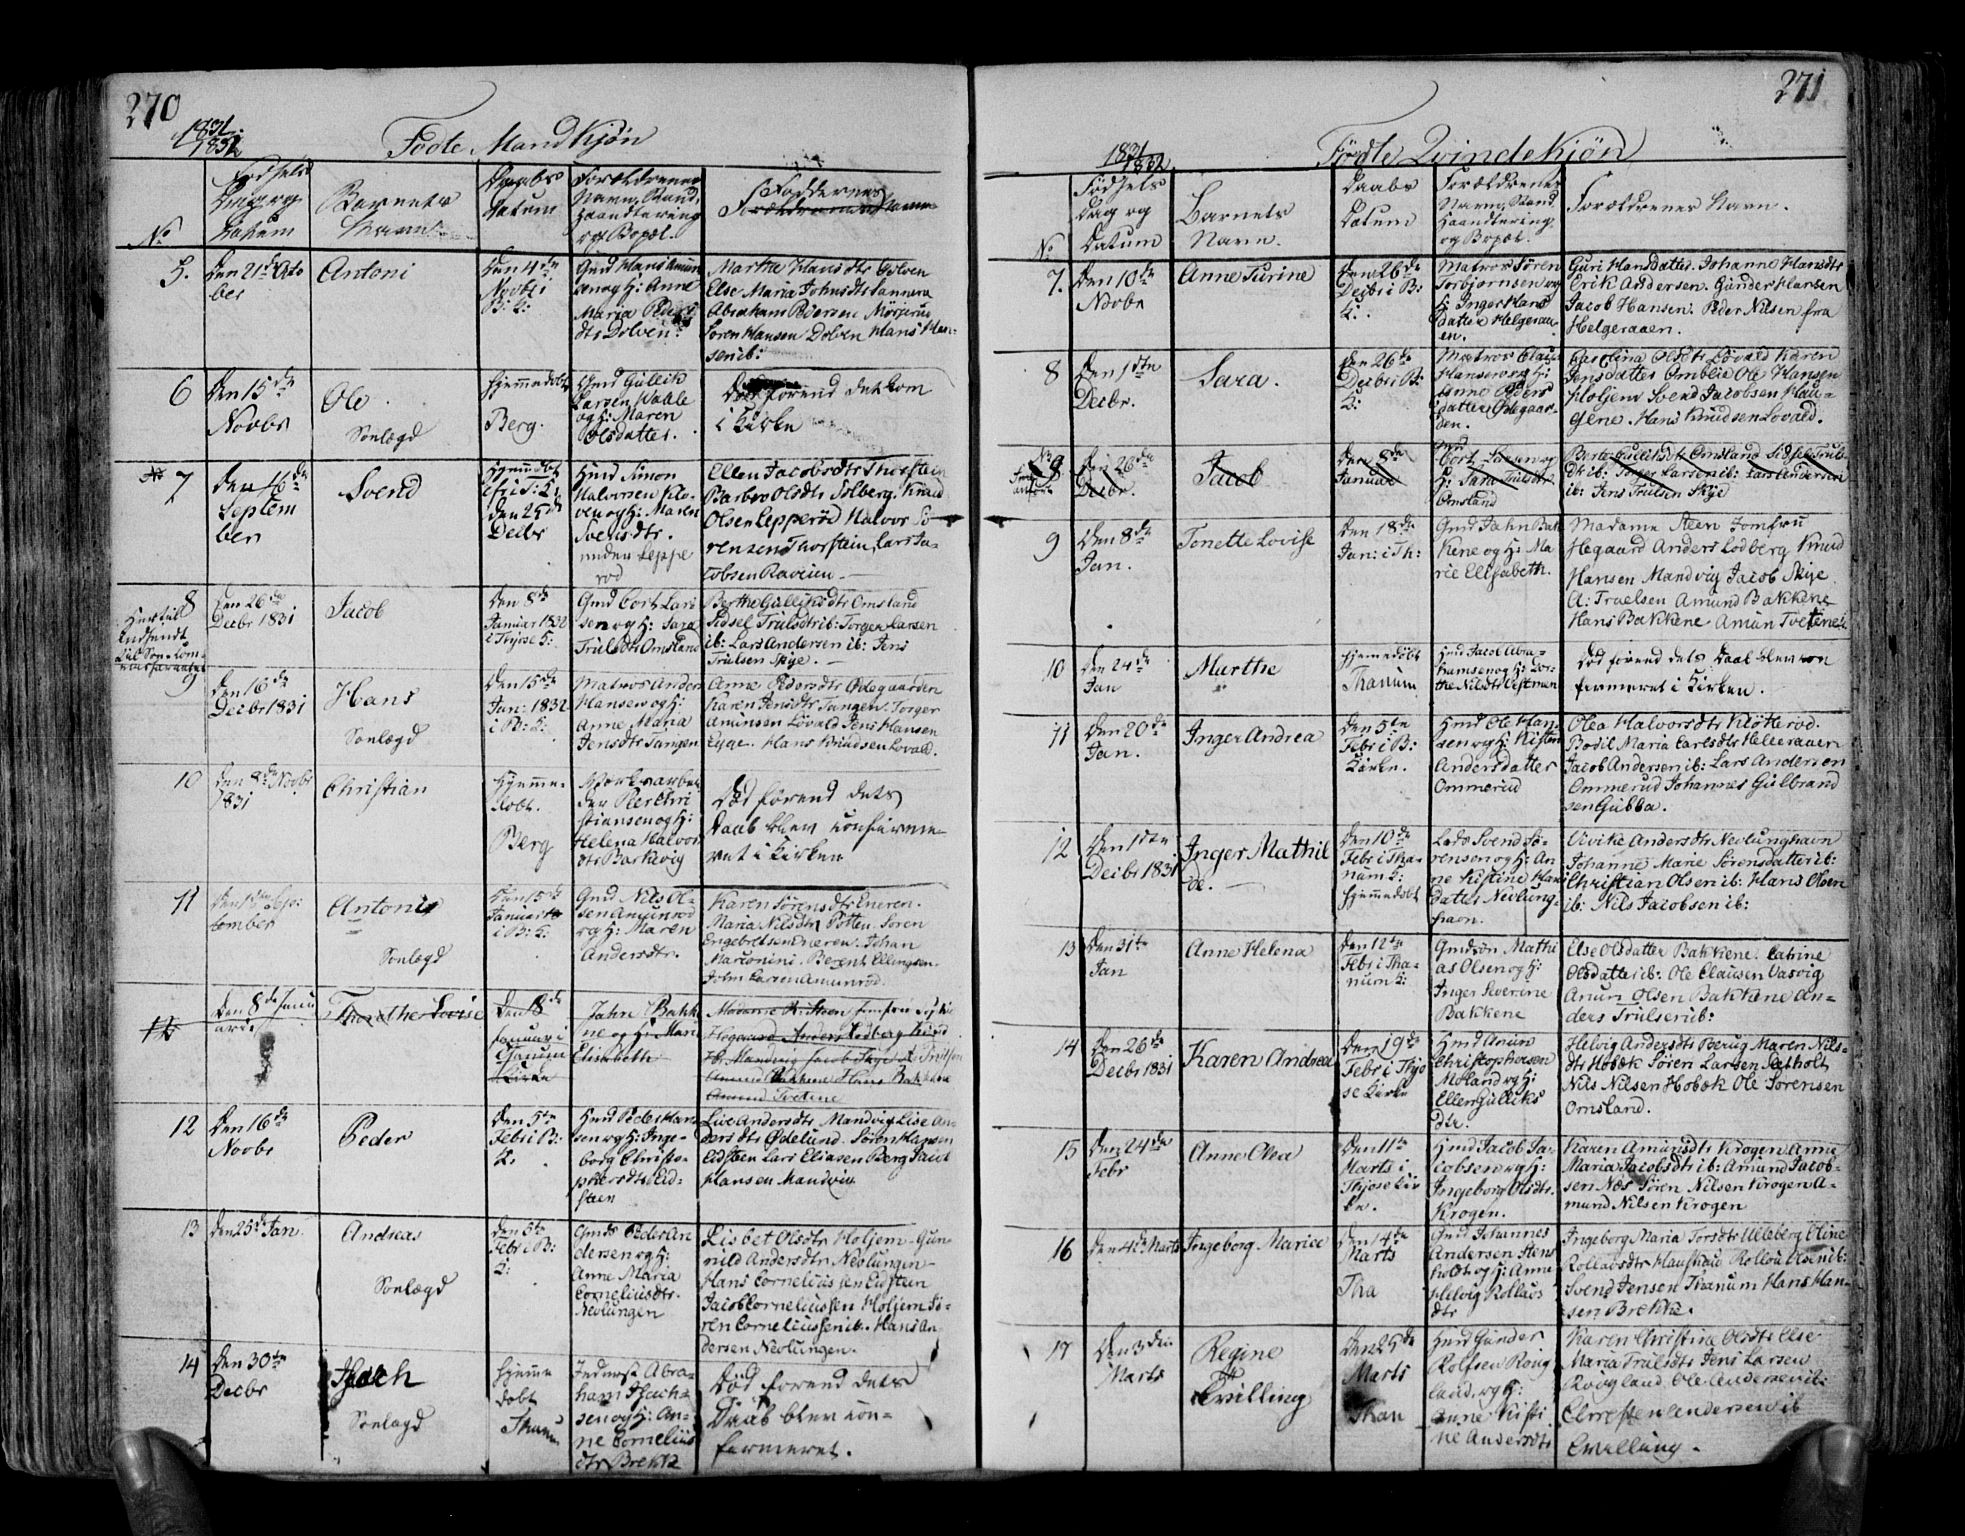 270
1831
1832
Födte Mandkjön
No
Födsels
Dag og
Datum
Barnets
Navn
Daabs
Datum
Foraeldrenes
Navn, Stand,
Haandtering
og Bopæl.
Faddernes
Navne
5.
Den 21de Octo
ber
Antoni
Den 4de
Novbr i
B: K:
Gmd Hans Amun
sen og H: Anne
Maria Peders
dtr Dolven.
Marthe Hansdtr Dolven
Else Maria Johnsdtr Sannem
Abraham Pedersen
Sören Hansen Dolven Hans Han-
sen ib:
6
Den 15de
Novbr
Ole
Sonlægd
Hjemmedöbt
Berg.
Hmd Gullik
Larsen
og H: Maren
Olsdatter.
Död förend det kom
i Kirke
7
Den 16de
Septem
ber
Svend
Hjemdöbt
Den 25de
Decbr
Hmd Simon
Halvorsen Klo-
ven og H: Maren
Svensdtr.
under Leppe
rod
Ellen Jacobsdtr Thorstein
Barbro Olsdtr Solberg. Knud
Olsen Lepperöd Halvor Sö-
rensen Thorstein, Lars Ja-
cobsen Raveien.-
8
Hertil
indsendt
Den 26de
Decbr 1831
Jacob
Den 8de
Januar 1832
i Thjose K:
Gmd Cort Lar
sen og H: Sara
Trulsdtr Omsland
Berthe Gulliksdtr Omsland
Sidsel Trulsdtr ib: Torger Larsen
ib: Lars Andersen ib: Jens
Trulsen Skje.-
9
Den 16de
Decbr 1831
Hans
Sonlægd
Den 15de
Jan: 1832
i B: K:
Matros Anders
Hansen og H:
Anne Maria
Jensdtr Tangen
Anne Pedersdtr Ødegaarden
Karen Jensdtr Tangen. Torger
Amunsen Lövald Jens Hansen
Hans Knudsen Lovald.
10
Den 8de Novbr
1831
Christian
Hjemme-
döbt.
Berg
Værksarbei
der Peer Chri
stiansen og H:
Helena Halvor
dtr Barkevig
Död förend dets
Daab blev confirme-
ret i Kirken
11
Antoni
Sonlægd
Den 15de
Januar
i B: K:
Gmd Nils Ol-
sen Amunrod
og H: Maren
Andersdtr.
Karen Sörensdtr Eneren.
Maria Nilsdtr Potten. Sören
Engebretsen Eneren. Johan
Berent Ellingsen.
John Larsen Amunrod.
12
Den 8de Janu
ar
Thorethe Lovise
Den 18de
Januar i
Tanum
Kirke
Jahn Bakk
ne og H: Marie
Elisabeth
Madame Steen Jomfru
Hegaard Anders Lodberg Knud
H. Mandvig Jacob Skye A Trulsen
Amund Bakkene Hans Bakkene
Amund Tvetene
12
Den 16de
Novbr
Peder
Den 5te
Febr i B:
K:
Hmd Peder Han
sen og H: Inge-
borg Christo-
phersdtr Eid-
sten
Live Andersdtr Mandvig Lise An-
dersdtr Ødelund. Sören Hansen
Eidsten Lars Eliasen Berg Jacob
Hansen Mandvig
13
Den 25de Jan
Andreas
Sonlægd
Den 5te
Febr i B:
K:
Gmd Peder An
dersen og H:
Anne Maria
Corneliusdtr.
Nevlungen
Lisbet Olsdtr Holjem. Gun-
nild Andersdtr Nevlungen-
Hans Corneliussen Eidsten
Jacob Corneliussen Holjem Sö-
ren Corneliussen ib. Hans An-
dersen Nevlungen.
14
Den 30te
Decbr
Isach
Sonlægd
Hjemme
döbt
Thanum
Inderst Abra-
ham Isach-
sen og H: An-
ne Cornelius
dtr Brekke
Död förend dets
Daab blev con-
fermeret.
271
1831
1832
Födte Qvindekjön
No
Födsels
Dag og
Datum
Barnets
Navn.
Daabs
Datum
Foraeldrenes
Navn, Stand
Haandtering
og Bopæl.
Foraeldrenes Navn.
7.
Den 10de
Novbr
Anne Turine
Den 26de
Decbr i B:
K:
Matros Sören
Torbjornsen og
H: Inger Hans
datter Helgeraa-
en.
Guri Hansdatter. Johanne Hansdtr
Erik Andersen. Gunder Hansen
Jacob Hansen. Peder Nilsen fra
Helgeraaen.
8
Den 1ste
Decbr.
Sara.
Den 26de
Decbr i B:
K:
Matros Claus
Hansen og H:
Anne Peders
datter Ødegaar-
den.
Karolina Olsdtr Lövald Karen
Jensdatter Omblie Ole Hansen
Holjem Svend Jacobsen Hau-
gene. Hans Knudsen Lovald.
No 8
Den 26de
Decbr.
Jacob
Den 8de
Januar
Cort Larsen og
H: Sara Trulsdtr
Omsland
Berte Gulliksdtr Omsland Sidsel Truls-
dtr ib: Torger Larsen ib: Lars Andersen
ib: Jens Trulsen Skje
9
Den 8de
Jan.
Tonette Lovise
Den 18de
Jan: i Th:
Gmd Jahn Bak
kene og H: Ma
rie Elisabeth.
Madame Steen Jomfru
Hegaard Anders Lodberg Knud
Hansen Mandvig Jacob Skije
A: Truelsen Amund Bakkene
Hans Bakkene Amun Tvetene.
10
Den 24de
Jan
Marthe
Hjemedöbt
Thanum
Hmd Jacob Abra-
hamsen og H: Dor-
the Nilsdtr Vestman
Död förend dets Daab blev con
fermeret i Kirken.
11
Den 20de
Jan.
Inger Andrea
Den 5te
Febr i B:
Kirke.
Hmd Ole Han-
sen og H: Kisten
Andersdatter
Ommerud
Olea Halvorsdtr Klötterod.
Bodil Maria Carlsdtr Helleraaen
Jacob Andersen ib: Lars Andersen
Ommerud Johannes Gulbrand
sen Gubba.
12
Den 1ste
Decbr 1831
Inger Mathil
de.-
Den 10de
Febr i Tha-
num K:
Hjemmedöbt
Lods Svend Sö-
rensen og H: An
ne Kistine Hans
datter Nevlung-
havn.
Vivike Andersdtr Nevlunghavn
Johanne Marie Sörensdatter ib:
Christian Olsen ib: Hans Olsen
ib: Nils Jacobsen ib:
13
Den 31te
Jan
Anne Helena
Den 12te
Febr i Tha-
num K:
Gmdsön Mathi
as Olsen og H:
Inger Severine
Bakkene
Else Olsdatter Bakkene. Catrine
Olsdatter ib: Ole Clausen Vasvig
Anun Olsen Bakkene An-
ders Trulsen ib:
14
Den 26de
Decbr 1831
Karen Andrea
Den 19de
Febr i Thjo
se Kirke
Hmd Anun
Christophersen
Moland og H:
Ellen Gulliks
dtr.
Helvig Andersdtr Berug Maren Nils-
dtr Hobek Sören Larsen Dalholt
Nils Nilsen Hobok Ole Sörensen
Omsland.
15
Den 24de
Febr
Anne Olea
Den 11te
Marts i
Thjose Kir
ke.
Hmd Jacob Ja-
cobsen og H:
Ingeborg Olsdtr.
Krogen.
Karen Amunsdtr Krogen Anne
Maria Jacobsdtr ib: Amund Jacob-
sen Næs Sören Nilsen Krogen A-
mund Nilsen Krogen
16
Den 4de Marts
Ingeborg Mariee
Den 14de
Marts
Tha
Gmd Johannes
Andersen Stens
holt og H: Anne
Helvig Rollaus
dtr
Ingeborg Maria Torsdtr Ulleberg Eline
Rollavsdtr Haushau Rollou Elsen ib:
Svend Jensen Thanum Hans Han-
sen Brekke.
17
Den 3die
Marts
Regine
Tvilling
Den 25de
Marts
Than
Hmd Gunder
Rolfsen Röug
land. og H:
Anne Kisti
ne Andersdtr
Karen Christine Olsdtr Else
Maria Trulsdtr Jens Larsen
Röugland Ole Andersen ib:
Christen Andersen ib
Tvilling-